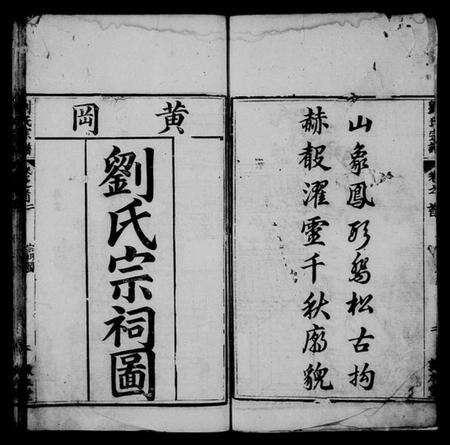 山象鳳形烏松古拘
赫赧濯靈千秋廟貌
黃岡
劉氏宗祠圖